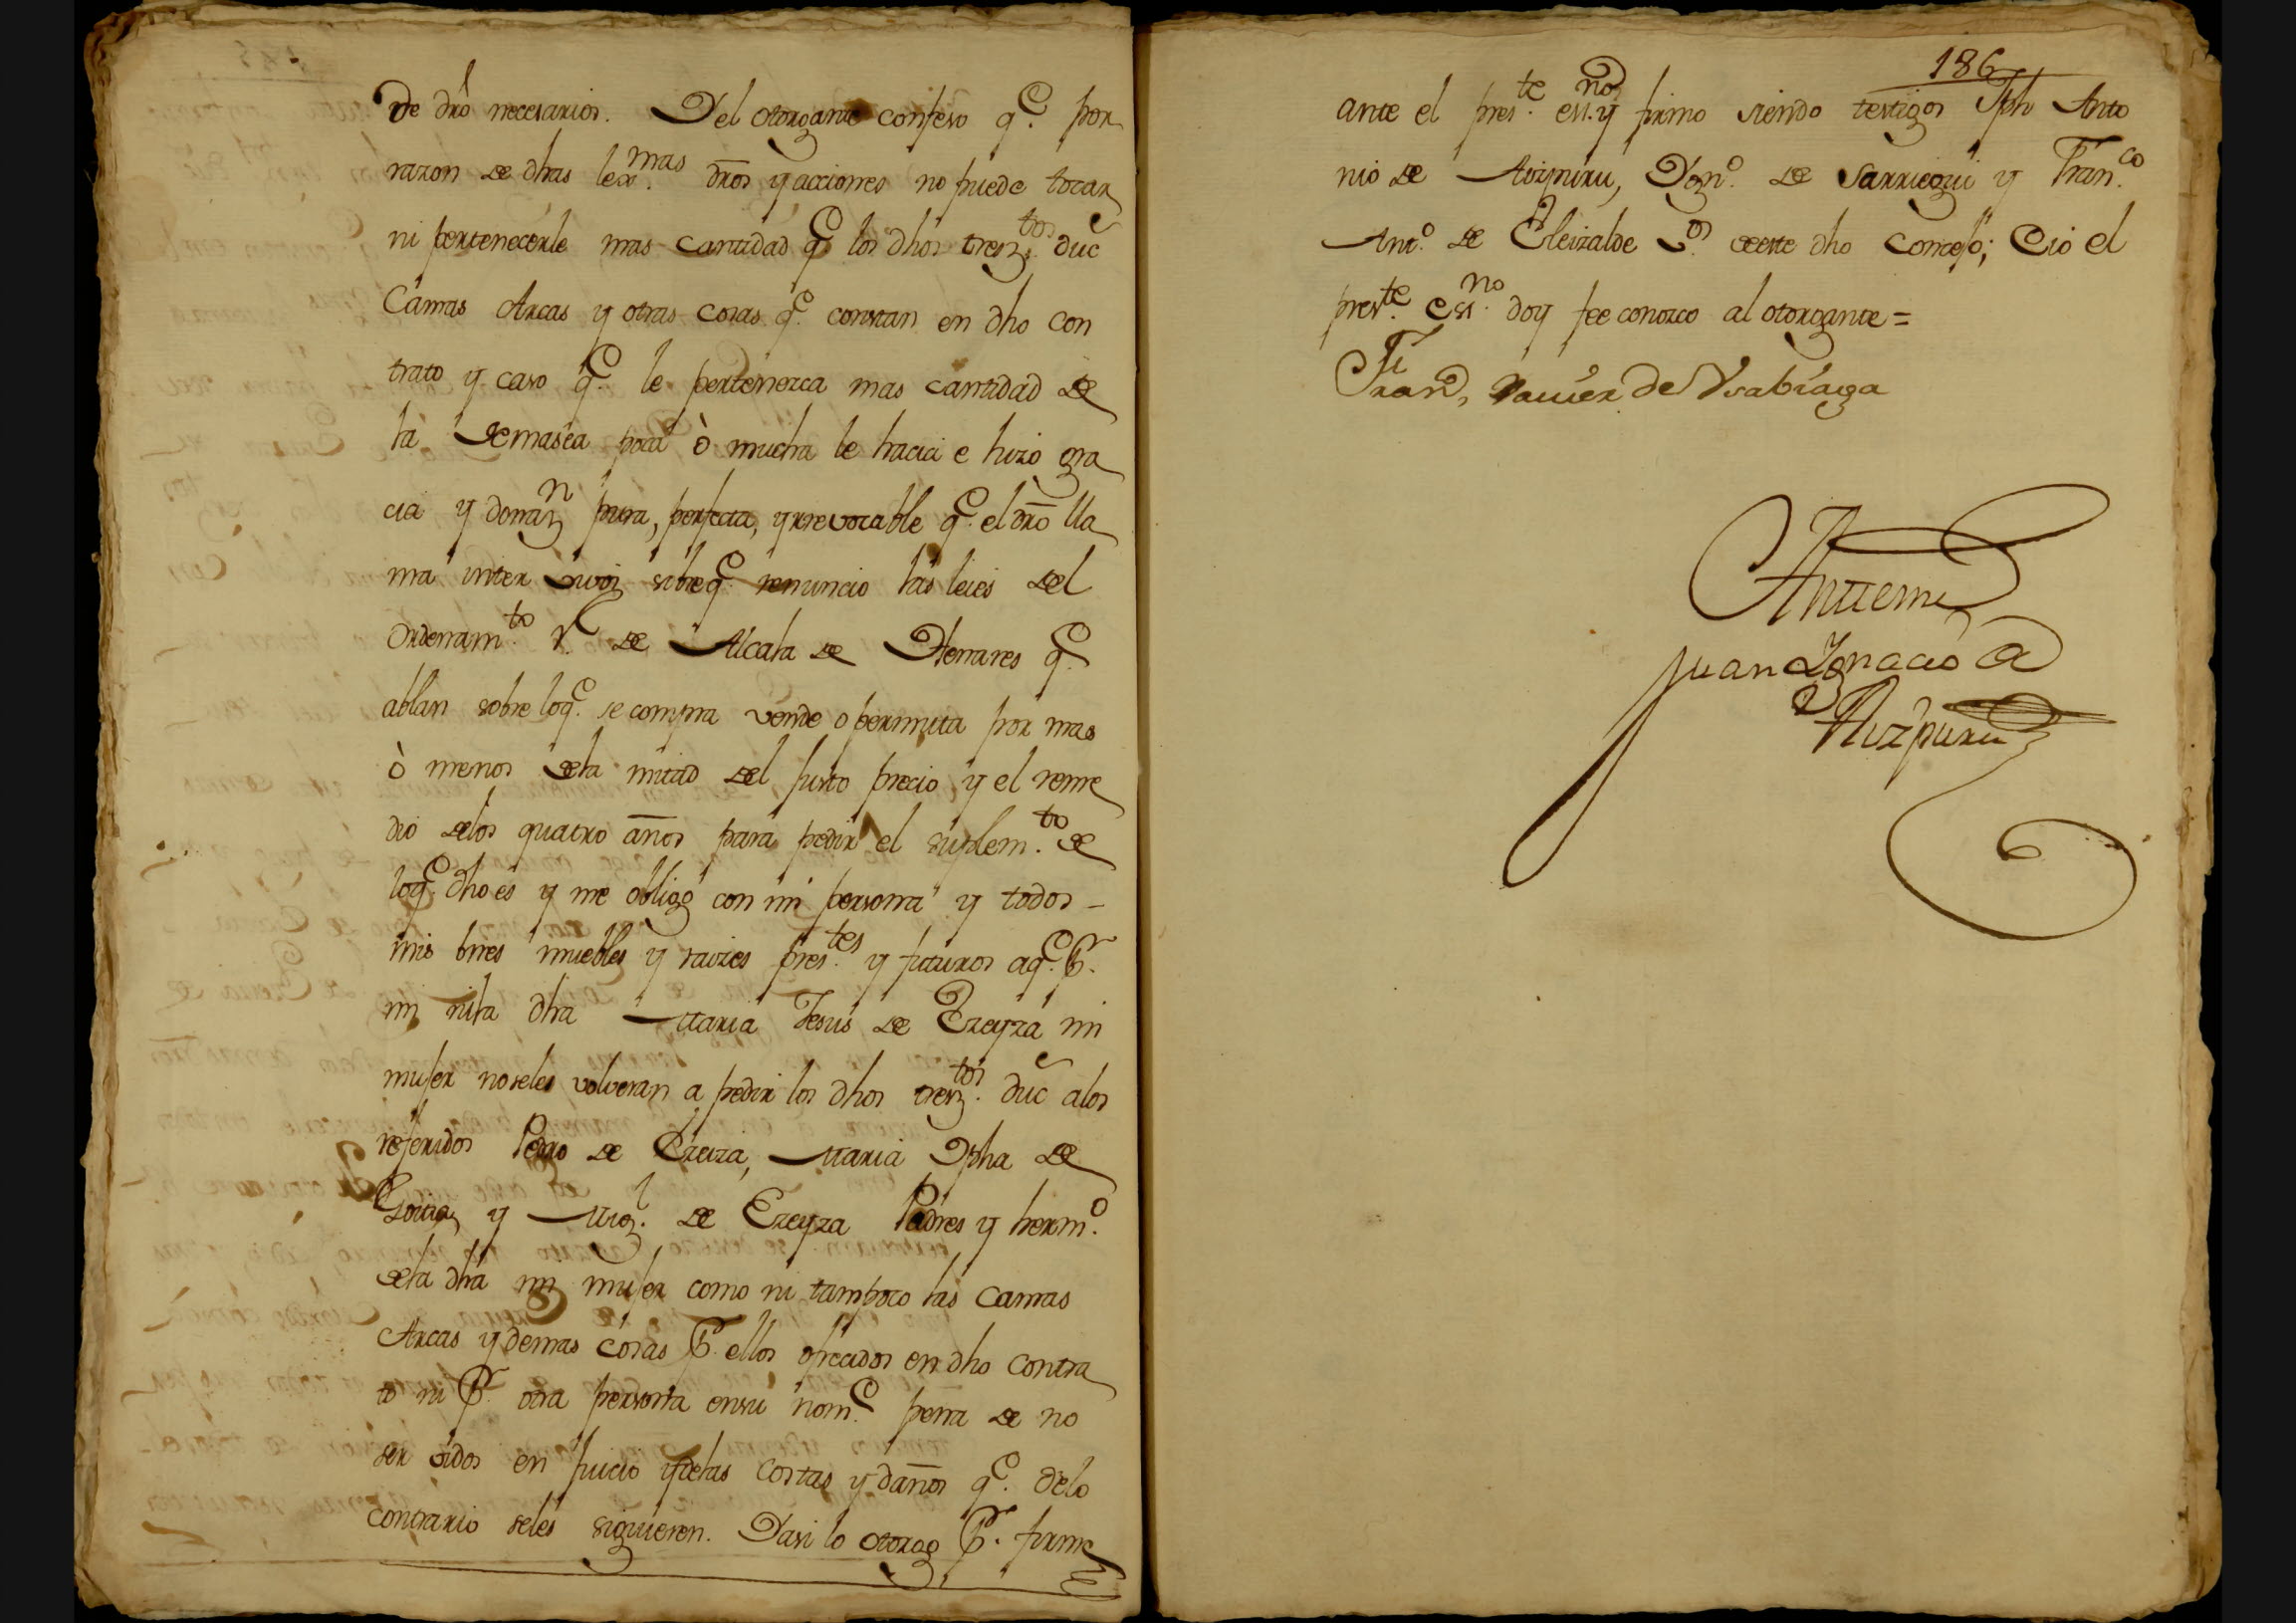 de dro necesarios. Y el otorgante confeso q.e por
razon de dhas lex.mas dros y acciones no puede tocar
ni pertenecerle mas cantidad q.e los dhos trez.tos duc
Camas Arcas y otras cosas q.e constan en dho con
trato y caso q.e le pertenezca mas cantidad de
la demasea poca ò mucha le hacia e hizo gra
cia y donaz.n pura, perfecta, yrrevocable q.e el dro lla
ma inter vivos sobre q.e renuncio las leies del
Ordenam.to R.l de Alcala de Henares q.e
ablan sobre loq.e se compra vende o permuta por mas
ò menos dela mitad del justo precio y el reme
dio delos quatro años para pedir el suplem.to de
loq.e dho es y me obligo con mi persona y todos
mis bnes muebles y raizes pres.tes y futuros aq.e p.r
mi ni la dha Maria Jesus de Ezeyza mi
mujer noseles volveran a pedir los dhos trez.tos duc alos
referidos Pedro de Ezeiza, Maria Jpha de
Goitia, y Mig.l de Ezeyza Padres y herm.o
dela dha mi mujer como ni tampoco las camas
Arcas y demas cosas p.r ellos ofrecidos en dho contra
to ni p.r otra persona ensu nom.e pena de no
ser oidos en juicio ydelas costas y daños q.e delo
contrario seles siguieren. Yasi lo otorgo p.r firme
186
ante el pres.te ess.no y firmo siendo testigos Jph Anto
nio de Aizpuru, Dgn.o de Sarriegui y Fran.co
Ant.o de Eleizalde v.os deeste dho Concejo; Eio el
pres.te ess.no doy fee conozco al otorgante =
Fran, Xauier de Ysabiaga
Antemi
Juan Ignacio de
Aizpuru